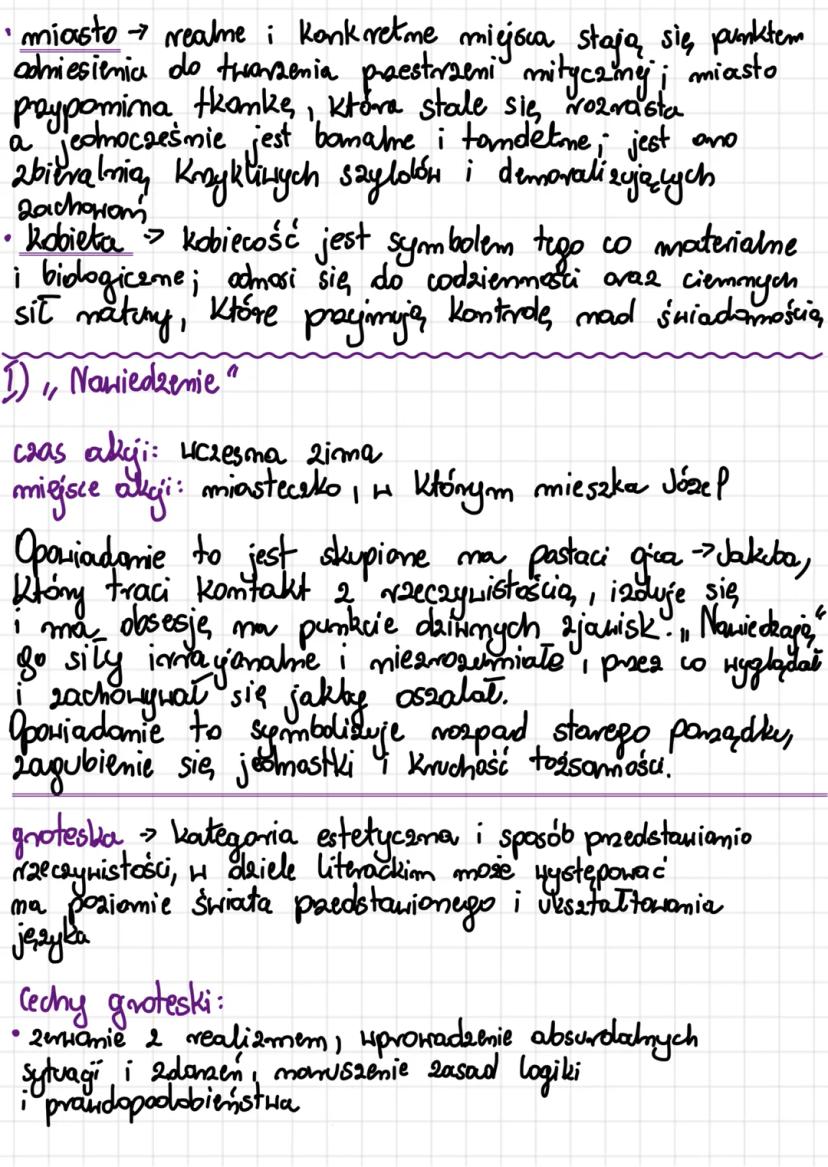 • miasto → realne i konkretne miejsca stają się punktem
odniesienia do tworzenia przestrzeni mitycznej; miasto
przypomina tkankę, która stale się rozrasta
a jednocześnie jest banalne i tandetne; jest ono
zbieralnią krzykliwych szyldów i demoralizujących
zachowań
• kobieta → kobiecość jest symbolem tego co materialne
i biologiczne; odnosi się do codzienności oraz ciemnych
sił natury, które przejmują kontrolę nad świadomością
I) „Nawiedzenie"
czas akcji: wczesna zima
miejsce akcji: miasteczko, w którym mieszka Józef
Opowiadanie to jest skupione na postaci ojca → Jakuba,
który traci kontakt z rzeczywistością, izoluje się
i ma obsesję na punkcie dziwnych zjawisk. „Nawiedzają"
go siły irracjonalne i niezrozumiałe, przez co wyglądał
i zachowywał się jakby oszalał.
Opowiadanie to symbolizuje rozpad starego porządku,
zagubienie się jednostki i kruchość tożsamości.
groteska → kategoria estetyczna i sposób przedstawiania
rzeczywistości, w dziele literackim może występować
na poziomie świata przedstawionego i ukształtowania
języka
Cechy groteski:
• zerwanie z realizmem, wprowadzenie absurdalnych
sytuacji i zdarzeń, naruszenie zasad logiki
i prawdopodobieństwa